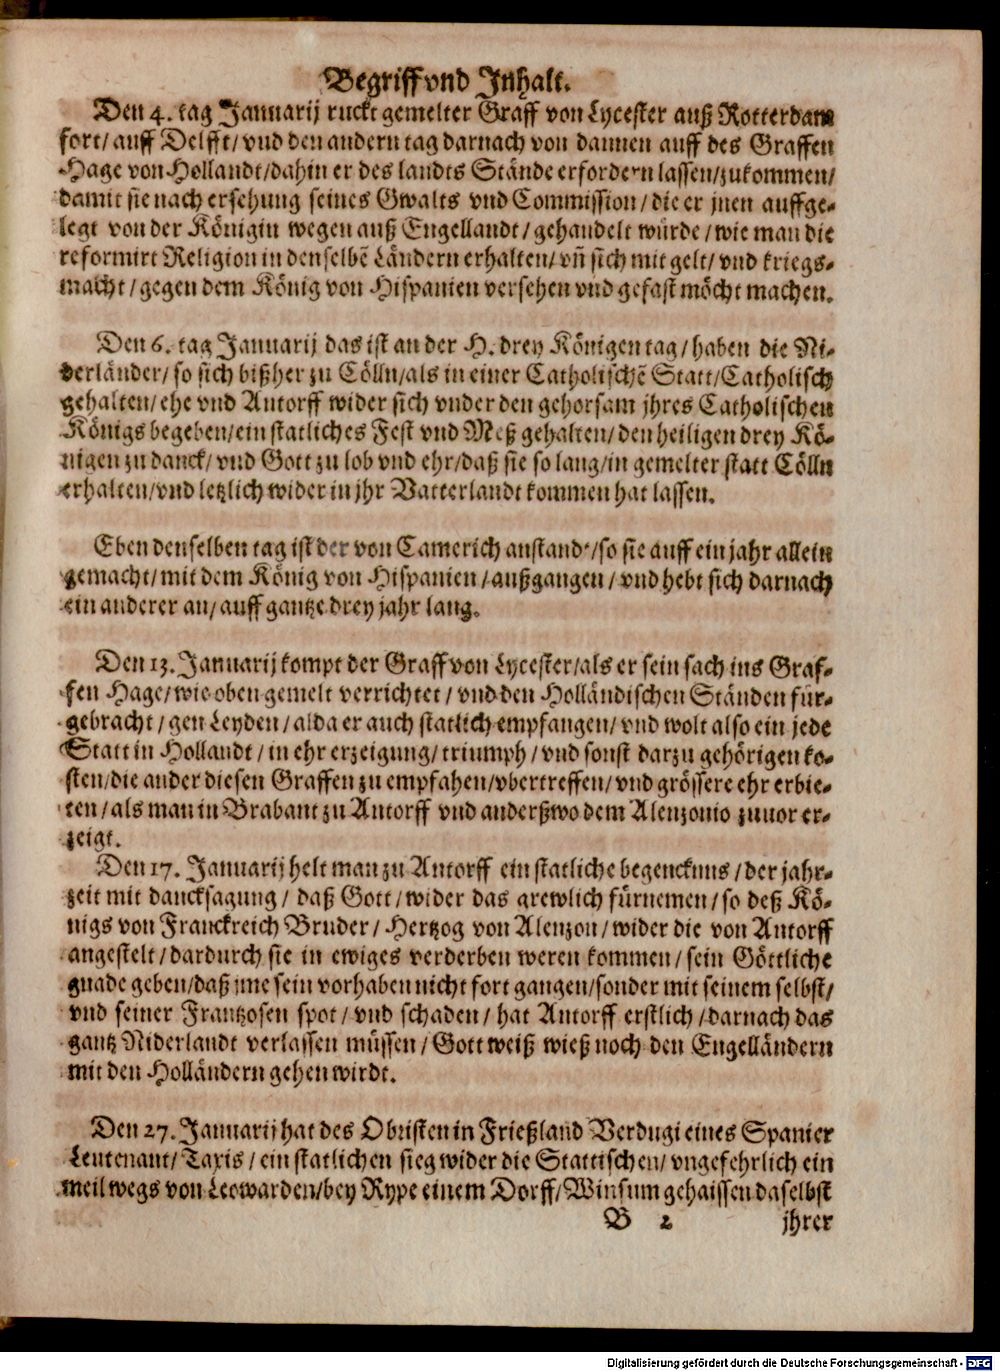 Begriff vnd Jnhalt.
Den 4. tag Januarij ruckt gemelter Graff von Lycester auß Rotterdam
fort/ auff Delfft/ vnd den andern tag darnach von dannen auff des Graffen
Hage von Hollandt/ dahin er des landts Stände erfordern lassen/ zukommen/
damit sie nach ersehung seines Gwalts vnd Commission/ die er jnen auffge-
legt von der Königin wegen auß Engellandt/ gehandelt würde/ wie man die
reformirt Religion in denselbē Ländern erhalten/ vñ sich mit gelt/ vnd kriegs-
macht/ gegen dem König von Hispanien versehen vnd gefast möcht machen.
Den 6. tag Januarij das ist an der H. drey Königen tag/ haben die Ni-
derländer/ so sich bißher zu Cölln/ als in einer Catholischē Statt/ Catholisch
gehalten/ ehe vnd Antorff wider sich vnder den gehorsam jhres Catholischen
Königs begeben/ ein statliches Fest vnd Meß gehalten/ den heiligen drey Kö-
nigen zu danck/ vnd Gott zu lob vnd ehr/ daß sie so lang/ in gemelter statt Cölln
erhalten/ vnd letzlich wider in jhr Vatterlandt kommen hat lassen.
Eben denselben tag ist der von Camerich anstandt/ so sie auff ein jahr allein
gemacht/ mit dem König von Hispanien/ außgangen/ vnd hebt sich darnach
ein anderer an/ auff gantze drey jahr lang.
Den 13. Januarij kompt der Graff von Lycester/ als er sein sach ins Graf-
fen Hage/ wie oben gemelt verrichtet/ vnd den Holländischen Ständen für-
gebracht/ gen Leyden/ alda er auch statlich empfangen/ vnd wolt also ein jede
Statt in Hollandt/ in ehr erzeigung/ triumph/ vnd sonst darzu gehörigen ko-
sten/ die ander diesen Graffen zu empfahen/ vbertreffen/ vnd grössere ehr erbie-
ten/ als man in Brabant zu Antorff vnd anderßwo dem Alenzonio zuuor er-
zeigt.
Den 17. Januarij helt man zu Antorff ein statliche begencknus/ der jahr-
zeit mit dancksagung/ daß Gott/ wider das grewlich fürnemen/ so deß Kö-
nigs von Franckreich Bruder/ Hertzog von Alenzon/ wider die von Antorff
angestelt/ dardurch sie in ewiges verderben weren kommen/ sein Göttliche
gnade geben/ daß jme sein vorhaben nicht fort gangen/ sonder mit seinem selbst/
vnd seiner Frantzosen spot/ vnd schaden/ hat Antorff erstlich/ darnach das
gantz Niderlandt verlassen müssen/ Gott weiß wieß noch den Engelländern
mit den Holländern gehen wirdt.
Den 27. Januarij hat des Obristen in Frießland Verdugi eines Spanier
Leutenant/ Taxis/ ein statlichen sieg wider die Stattischen/ vngefehrlich ein
meil wegs von Leowarden/ bey Rype einem Dorff/ Winsum gehaissen daselbst
B 2 jhrer
Digitalisierung gefördert durch die Deutsche Forschungsgemeinschaft - DFG